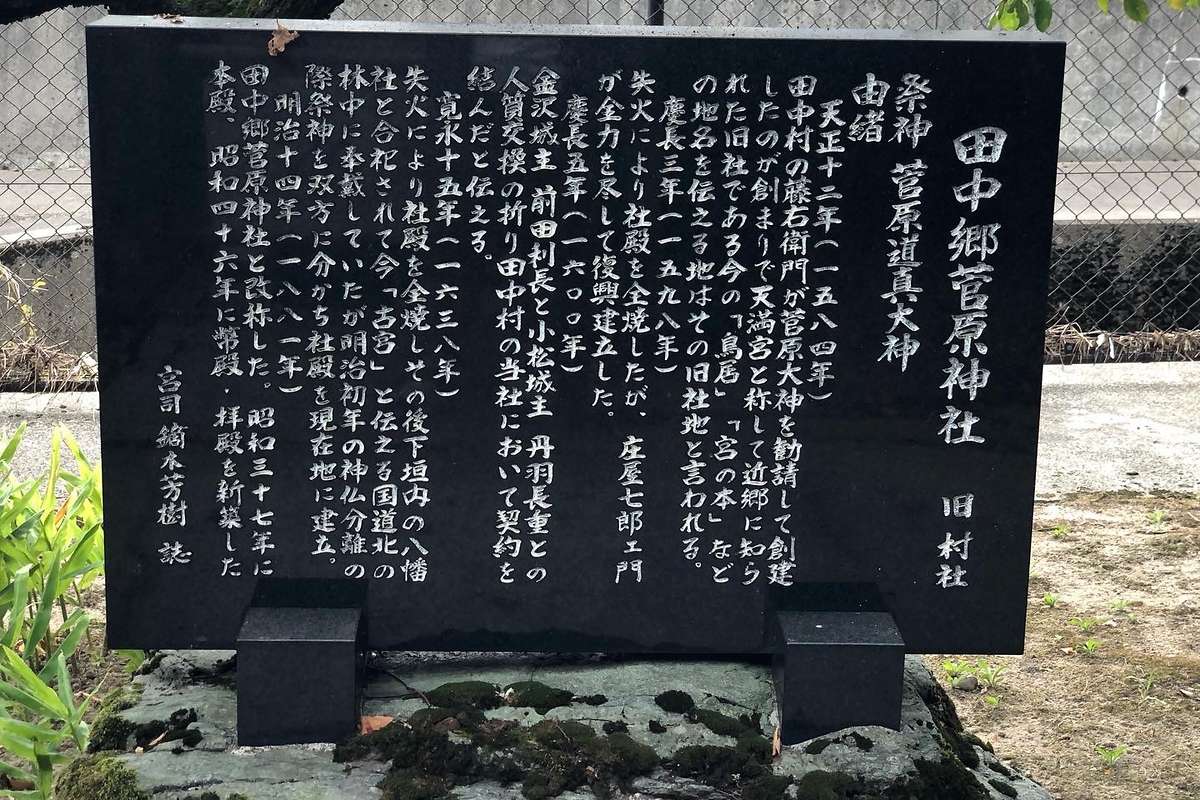 田中郷菅原神社 旧村社
祭神 菅原道真大神
由緒
天正十二年(一五八四年)
田中村の藤右衛門が菅原大神を勧請して創建
したのが創まりで天満宮と称して近郷に知ら
れた旧社である今の「鳥居」「宮の本」など
の地名を伝える地はその旧社地と言われる。
慶長三年(一五九八年)
失火により社殿を全焼したが、庄屋七郎ェ門
が全力を尽して復興建立した。
慶長五年(一六〇〇年)
金沢城主 前田利長と小松城主 丹羽長重との
人質交換の折り田中村の当社において契約を
結んだと伝える。
寛永十五年(一六三八年)
失火により社殿を全焼しその後下垣内の八幡
社と合祀されて今「古宮」と伝える国道北の
林中に奉戴していたが明治初年の神仏分離の
際祭神を双方に分かち社殿を現在地に建立。
明治十四年(一八八一年)
田中郷菅原神社と改称した。昭和三十七年に
本殿、昭和四十六年に幣殿・拝殿を新築した
宮司 鏑木芳樹 誌